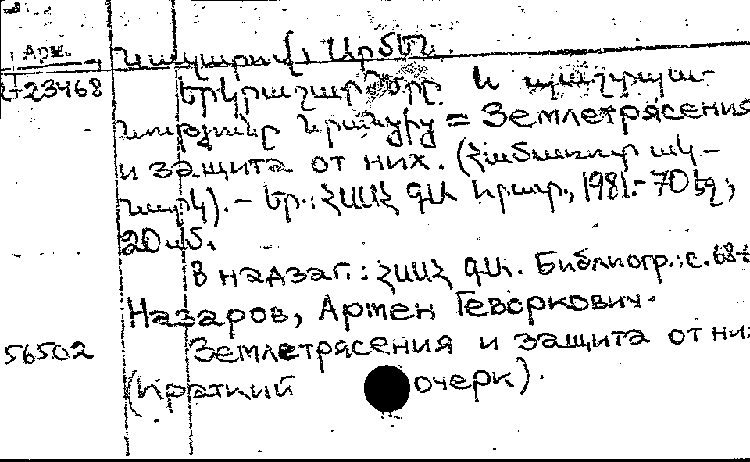 Арм.
Նազարով, Արմեն.
23468 Երկրաշարժերը և պաշտպա-
նությունը նրանցից = Землетрясения
и защита от них. (Համառոտ ակ-
նարկ). – Եր.: ՀՍՍՀ ԳԱ հրատ., 1981.- 70 էջ;
20 սմ.
В надзаг.: ՀՍՍՀ ԳԱ. Библиогр.: с. 68-
Назаров, Армен Геворкович.
56502 Землетрясения и защита от них
(Краткий очерк).